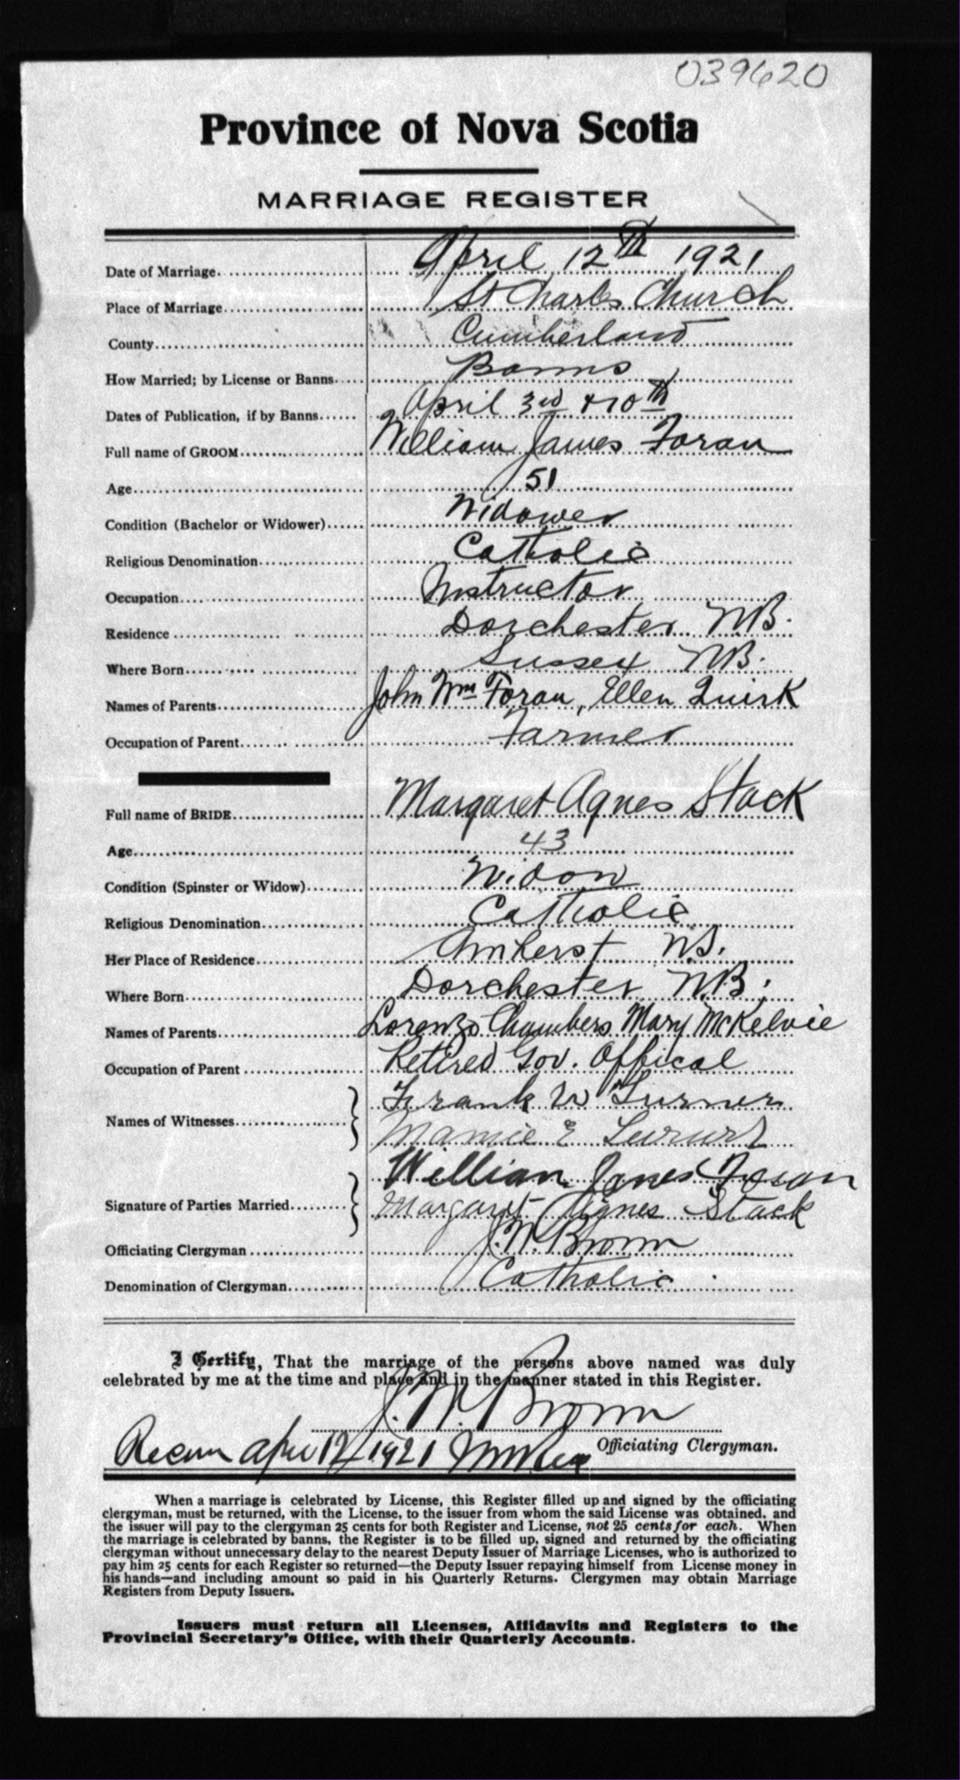 039620
Province of Nova Scotia
MARRIAGE REGISTER
Date of Marriage. April 12th 1921
Place of Marriage St Charles Church
County Cumberland
How Married; by License or Banns Banns
Dates of Publication, if by Banns April 3rd & 10th
Full name of GROOM William James Foran
Age 51
Condition (Bachelor or Widower) Widower
Religious Denomination Catholic
Occupation Instructor
Residence Dorchester N.B.
Where Born Sussex NB.
Names of Parents John Wm Foran, Ellen Quirk
Occupation of Parent Farmer
Full name of BRIDE Margaret Agnes Stack
Age 43
Condition (Spinster or Widow) Widow
Religious Denomination Catholic
Her Place of Residence Amherst N.S.
Where Born Dorchester N.B.
Names of Parents Lorenzo Chambers Mary McKelvie
Occupation of Parent Retired Gov. Offical
Names of Witnesses Frank W Turner
Mamie E
Signature of Parties Married William James Foran
Margaret Agnes Stack
Officiating Clergyman J. W. Brown
Denomination of Clergyman Catholic
I Certify, That the marriage of the persons above named was duly
celebrated by me at the time and place and in the manner stated in this Register.
J. W. Brown
Officiating Clergyman.
1921
When a marriage is celebrated by License, this Register filled up and signed by the officiating
clergyman, must be returned, with the License, to the issuer from whom the said License was obtained, and
the issuer will pay to the clergyman 25 cents for both Register and License, not 25 cents for each. When
the marriage is celebrated by banns, the Register is to be filled up, signed and returned by the officiating
clergyman without unnecessary delay to the nearest Deputy Issuer of Marriage Licenses, who is authorized to
pay him 25 cents for each Register so returned—the Deputy Issuer repaying himself from License money in
his hands—and including amount so paid in his Quarterly Returns. Clergymen may obtain Marriage
Registers from Deputy Issuers.
Issuers must return all Licenses, Affidavits and Registers to the
Provincial Secretary's Office, with their Quarterly Accounts.